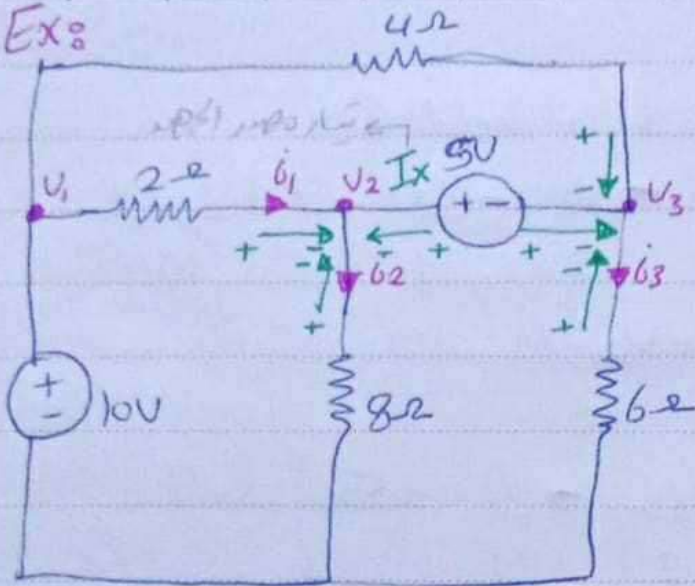 Ex:
4Ω
V1 2Ω i1 V2 Ix 5V V3
+ -
+ - - + + -
+ -
i2 i3
- -
+ +
+
-
10V 8Ω 6Ω